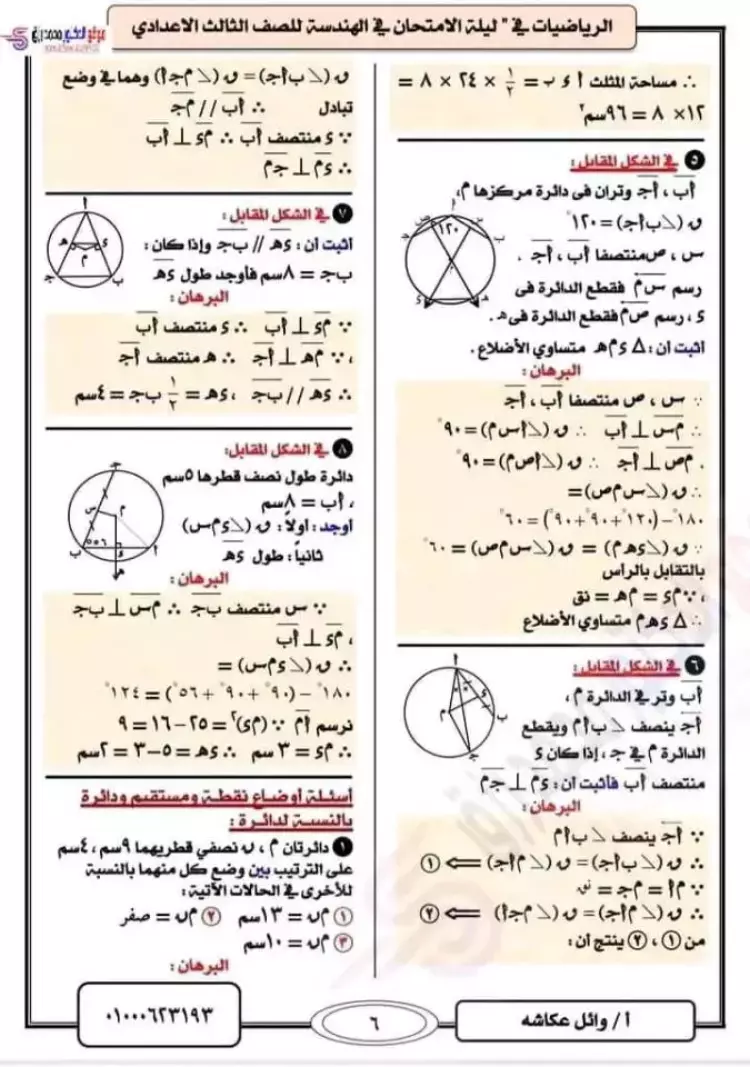 الرياضيات في " ليلة الامتحان في الهندسة للصف الثالث الاعدادي
∴ مساحة المثلث أ ء ب = ١/٢ × ٢٤ × ٨ =
١٢ × ٨ = ٩٦سم٢
٥ في الشكل المقابل :
أب ، أجـ وتران فى دائرة مركزها م،
ق (∠ب أجـ) = ١٢٠°
س ، ص منتصفا أب ، أجـ .
رسم س م فقطع الدائرة فى
ء ، رسم ص م فقطع الدائرة فى هـ .
اثبت ان : Δ ء م هـ متساوي الأضلاع .
البرهان :
∵ س ، ص منتصفا أب ، أجـ
∴ م س ⊥ أب ∴ ق (∠أ س م) = ٩٠°
، م ص ⊥ أجـ ∴ ق (∠أ ص م) = ٩٠°
∴ ق (∠س م ص) =
١٨٠° - (١٢٠° + ٩٠° + ٩٠°) = ٦٠°
∵ ق (∠ء م هـ) = ق (∠س م ص) = ٦٠°
بالتقابل بالرأس
، ∵ م ء = م هـ = نق
∴ Δ ء هـ م متساوي الأضلاع
٦ في الشكل المقابل :
أب وتر في الدائرة م ،
أجـ ينصف ∠ب أ م ويقطع
الدائرة م في جـ ، إذا كان ء
منتصف أب فأثبت أن : ء م ⊥ جـ م
البرهان :
∵ أجـ ينصف ∠ب أ م
∴ ق (∠ب أجـ) = ق (∠م أجـ) ⇐ ①
∵ م أ = م جـ = نق
∴ ق (∠م أجـ) = ق (∠م جـ أ) ⇐ ②
من ① ، ② ينتج أن :
ق (∠ب أجـ) = ق (∠م جـ أ) وهما في وضع
تبادل ∴ أب // م جـ
∵ ء منتصف أب ∴ م ء ⊥ أب
∴ ء م ⊥ جـ م
٧ في الشكل المقابل :
اثبت أن : ء هـ // ب جـ وإذا كان :
ب جـ = ٨سم فأوجد طول ء هـ
البرهان :
∵ م ء ⊥ أب ∴ ء منتصف أب
، ∵ م هـ ⊥ أجـ ∴ هـ منتصف أجـ
∴ ء هـ // ب جـ ، ء هـ = ١/٢ ب جـ = ٤سم
٨ في الشكل المقابل:
دائرة طول نصف قطرها ٥سم
، أب = ٨سم
أوجد : أولاً : ق (∠ء م س)
ثانياً : طول ء هـ
البرهان :
∵ س منتصف ب جـ ∴ م س ⊥ ب جـ
، م ء ⊥ أب
∴ ق (∠ء م س) =
١٨٠° - (٩٠° + ٩٠° + ٥٦°) = ١٢٤°
نرسم أم ∵ (م ء)٢ = ٢٥ - ١٦ = ٩
∴ م ء = ٣ سم ∴ ء هـ = ٥ - ٣ = ٢سم
أسئلة أوضاع نقطة ومستقيم ودائرة
بالنسبة لدائرة :
١ دائرتان م ، ن نصفي قطريهما ٩سم ، ٤سم
على الترتيب بين وضع كل منهما بالنسبة
للأخرى في الحالات الآتية :
① م ن = ١٣سم ② م ن = صفر
③ م ن = ١٠سم
البرهان :
أ / وائل عكاشه
٦
٠١٠٠٠٦٢٣١٩٣